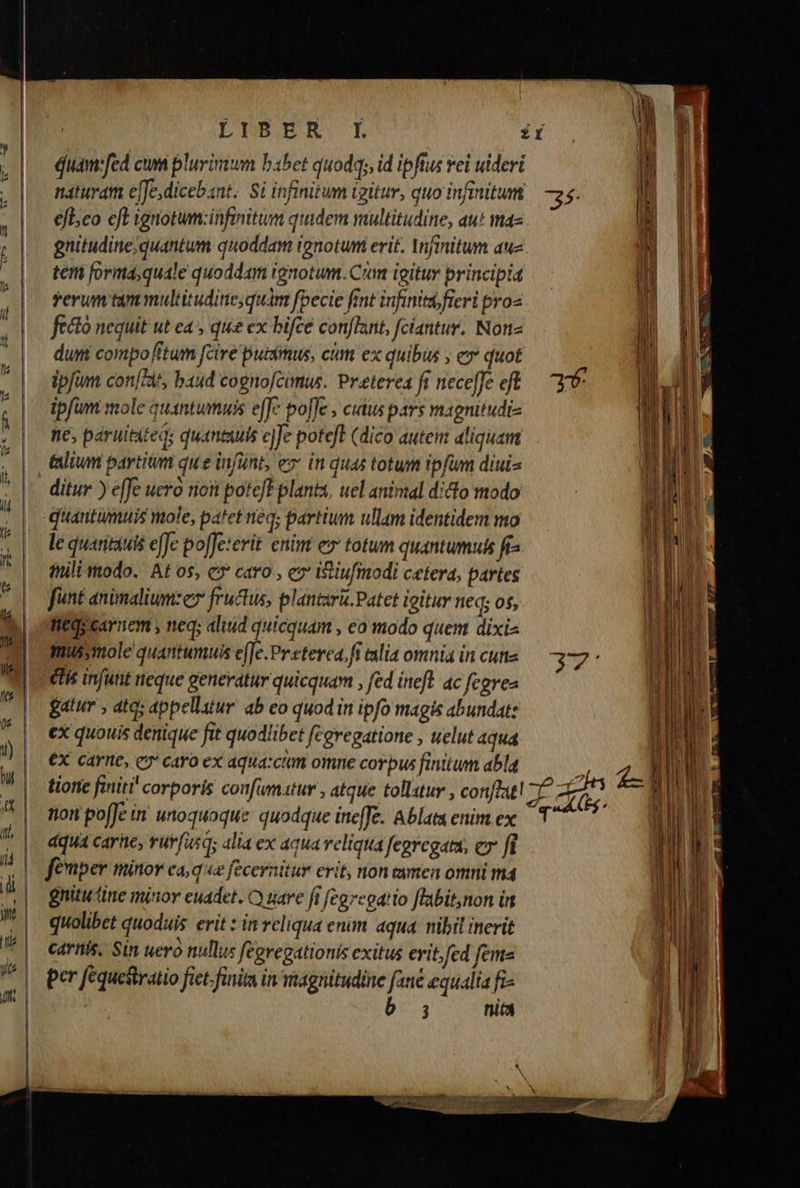 LIBER I. 11
quam:ſed cum plurimum habet quodq;, id ipſius rei uideri
naturam eſſe,dicebant. Si infinitum igitur, quo infinitum 35.
eſt,eo eſt ignotum:infinitum quidem multitudine, aut ma=
gnitudine,quantum quoddam ignotum erit. Infinitum au=
tem forma,quale quoddam ignotum. Cum igitur principia
rerum tam multitudine,quàm ſpecie ſint infinita,fieri pro=
fecto nequit ut ea, quæ ex hiſce conſtant, ſciantur. Non=
dum compoſitum ſcire putamus, cum ex quibus, & quot
ipſum conſtat, haud cognoſcimus. Preterea ſi neceſſe eſt 36.
ipſum mole quantumuis eſſe poſſe, cuius pars magnitudi=
ne, paruitateq; quantauis eſſe poteſt (dico autem aliquam
talium partium que inſunt, & in quas totum ipſum diui=
ditur) eſſe uerò non poteſt planta, uel animal dicto modo
quantumuis mole, patet neq; partium ullam identidem mo
le quantauis eſſe poſſe:erit enim & totum quantumuis ſi=
mili modo. At os, & caro, & iſtiuſmodi cætera, partes
ſunt animalium:& fructus, plantarū.Patet igitur neq; os,
neq; carnem, neq; aliud quicquam, eo modo quem dixi=
mus,mole quantumuis eſſe.Preterea,ſi talia omnia in cun= 37.
ctis inſunt neque generatur quicquam, ſed ineſt ac ſegre=
gatur, atq; appellatur ab eo quod in ipſo magis abundat:
ex quouis denique fit quodlibet ſegregatione, uelut aqua
ex carne, & caro ex aqua:cùm omne corpus finitum abla
tione finiti corporis conſumatur, atque tollatur, conſtat
non poſſe in unoquoque quodque ineſſe. Ablata enim ex
aqua carne, rurſusq; alia ex aqua reliqua ſegregata, & ſi
ſemper minor ea,quæ ſecernitur erit, non tamen omni ma
gnitudine minor euadet. Quare ſi ſegregatio ſtabit,non in
quolibet quoduis erit: in reliqua enim aqua nihil inerit
carnis. Sin uerò nullus ſegregationis exitus erit,ſed ſem=
per ſequeſtratio fiet.finita in magnitudine ſanè æqualia fi=
b 3 nita